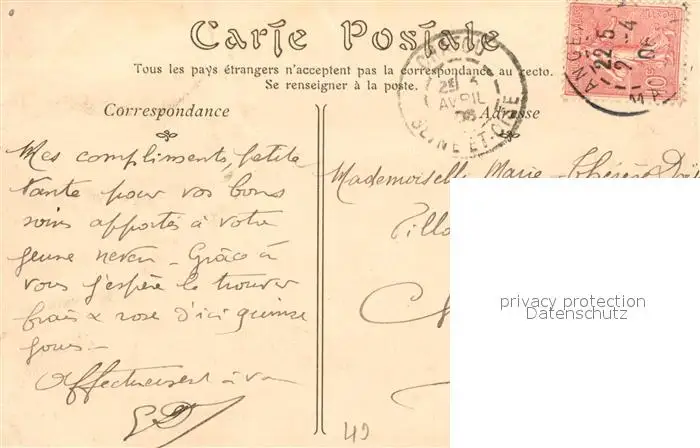 Carte Postale
Tous les pays étrangers n'acceptent pas la correspondance au recto.
Se renseigner à la poste.
Correspondance
Adresse
Mes compliments, petite
tante pour vos bons
soins apportés à votre
jeune neveu - Grâce à
vous j'espère le trouver
frais & rose d'ici quinze
jours -
Affectueusement à vous
Mademoiselle Marie-Thérèse
Villa
22 5
2-4
ANGE
10c
25
AVRIL
SEINE ET OISE
privacy protection
Datenschutz
49